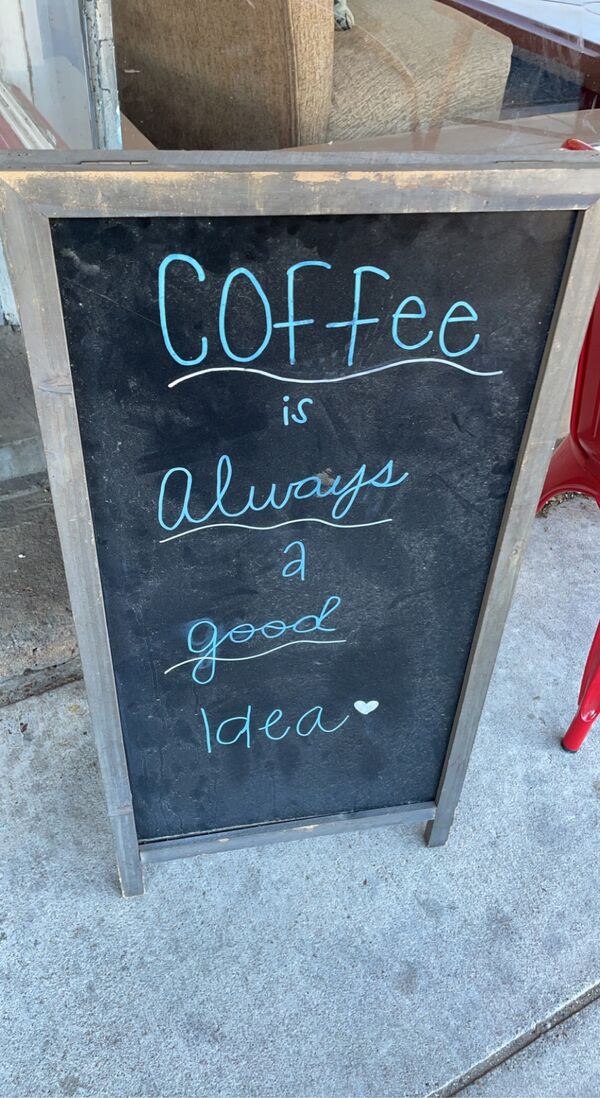 Coffee
is
Always
a
good
Idea